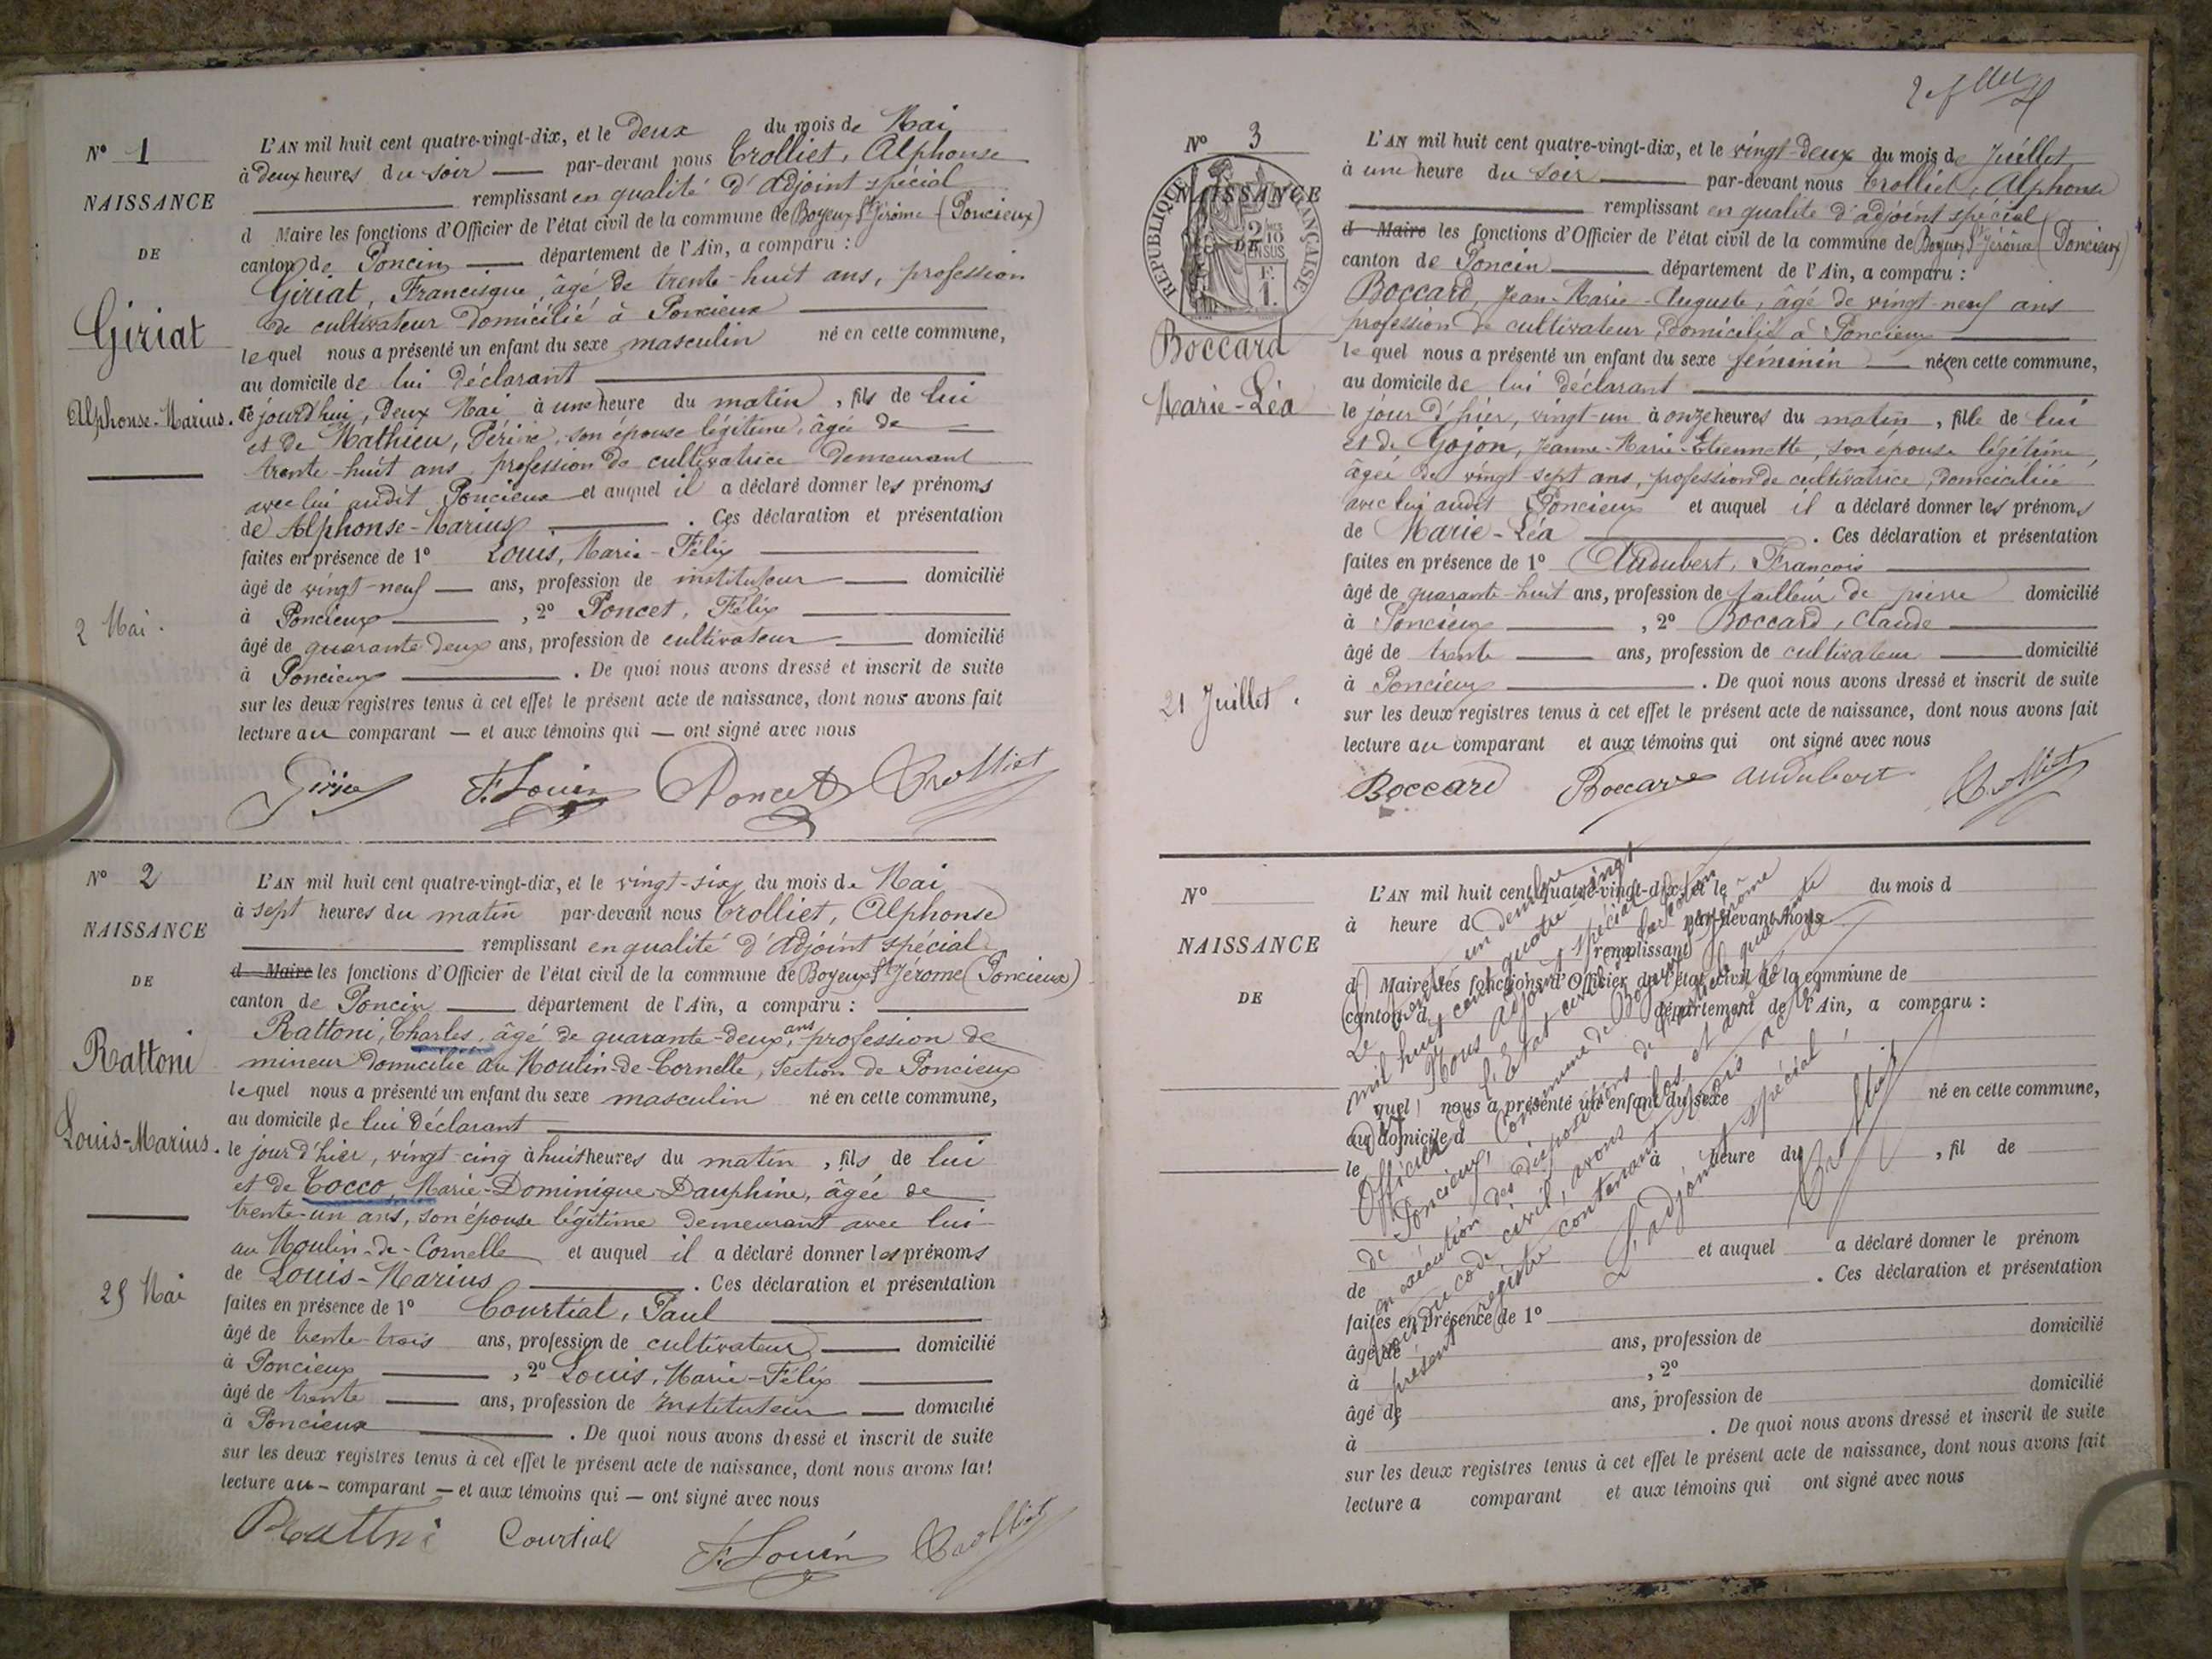 N° 1
NAISSANCE
DE
Giriat
Alphonse-Marius.
2 Mai.
L'AN mil huit cent quatre-vingt-dix, et le Deux du mois de Mai
à deux heures du soir par-devant nous Trolliet, Alphonse
remplissant en qualité d'adjoint spécial
d Maire les fonctions d'Officier de l'état civil de la commune de Boyeux St Jérôme (Poncieux)
canton de Poncin département de l'Ain, a comparu :
Giriat, Francisque, âgé de trente-huit ans, profession
de cultivateur domicilié à Poncieux
lequel nous a présenté un enfant du sexe masculin né en cette commune,
au domicile de lui déclarant
ce jourd'hui, deux Mai à une heure du matin, fils de lui
et de Mathieu, son épouse légitime, âgée de
trente-huit ans, profession de cultivatrice demeurant
avec lui audit Poncieux et auquel il a déclaré donner les prénoms
de Alphonse-Marius. Ces déclaration et présentation
faites en présence de 1° Louis, Marie-Félix
âgé de vingt-neuf ans, profession de instituteur domicilié
à Poncieux, 2° Poncet, Félix
âgé de quarante deux ans, profession de cultivateur domicilié
à Poncieux. De quoi nous avons dressé et inscrit de suite
sur les deux registres tenus à cet effet le présent acte de naissance, dont nous avons fait
lecture au comparant — et aux témoins qui — ont signé avec nous
F. Louis Poncet Trolliet
N° 2
NAISSANCE
DE
Rattoni
Louis-Marius.
25 Mai
L'AN mil huit cent quatre-vingt-dix, et le vingt-six du mois de Mai
à sept heures du matin par-devant nous Trolliet, Alphonse
remplissant en qualité d'adjoint spécial
d Maire les fonctions d'Officier de l'état civil de la commune de Boyeux St Jérome (Poncieux)
canton de Poncin département de l'Ain, a comparu :
Rattoni, Charles, âgé de quarante-deux ans, profession de
mineur domicilié au Moulin-de-Cornelle, section de Poncieux
lequel nous a présenté un enfant du sexe masculin né en cette commune,
au domicile de lui déclarant
le jour d'hier, vingt-cinq à huit heures du matin, fils de lui
et de Tocco, Marie-Dominique-Dauphine, âgée de
trente-un ans, son épouse légitime demeurant avec lui
au Moulin-de-Cornelle et auquel il a déclaré donner les prénoms
de Louis-Marius. Ces déclaration et présentation
faites en présence de 1° Courtial, Paul
âgé de trente-trois ans, profession de cultivateur domicilié
à Poncieux, 2° Louis, Marie-Félix
âgé de trente ans, profession de instituteur domicilié
à Poncieux. De quoi nous avons dressé et inscrit de suite
sur les deux registres tenus à cet effet le présent acte de naissance, dont nous avons fait
lecture au — comparant — et aux témoins qui — ont signé avec nous
Rattni Courtial F. Louis Trolliet
N° 3
NAISSANCE
DE
RÉPUBLIQUE FRANÇAISE
2/10 EN SUS
F. 1.
Boccard
Marie-Léa
21 Juillet.
L'AN mil huit cent quatre-vingt-dix, et le vingt-deux du mois de Juillet
à une heure du soir par-devant nous Trolliet, Alphonse
remplissant en qualité d'adjoint spécial
d Maire les fonctions d'Officier de l'état civil de la commune de Boyeux St Jérôme (Poncieux)
canton de Poncin département de l'Ain, a comparu :
Boccard, Jean-Marie-Auguste, âgé de vingt-neuf ans
profession de cultivateur, domicilié à Poncieux
lequel nous a présenté un enfant du sexe féminin née en cette commune,
au domicile de lui déclarant
le jour d'hier, vingt-un à onze heures du matin, fille de lui
et de Gojon, Jeanne-Marie-Etiennette, son épouse légitime,
âgée de vingt-sept ans, profession de cultivatrice, domiciliée
avec lui audit Poncieux et auquel il a déclaré donner les prénoms
de Marie-Léa. Ces déclaration et présentation
faites en présence de 1° Audubert, François
âgé de quarante-huit ans, profession de tailleur de pierre domicilié
à Poncieux, 2° Boccard, Claude
âgé de trente ans, profession de cultivateur domicilié
à Poncieux. De quoi nous avons dressé et inscrit de suite
sur les deux registres tenus à cet effet le présent acte de naissance, dont nous avons fait
lecture au comparant et aux témoins qui ont signé avec nous
Boccard Boccard audubert Trolliet
N°
NAISSANCE
DE
L'AN mil huit cent quatre-vingt-dix, et le du mois d
à heure d par-devant nous
remplissant
d Maire les fonctions d'Officier de l'état civil de la commune de
canton d département de l'Ain, a comparu :
quel nous a présenté un enfant du sexe né en cette commune,
au domicile d
le à heure du, fil de
et auquel a déclaré donner le prénom
de. Ces déclaration et présentation
faites en présence de 1°
âgé de ans, profession de domicilié
à, 2°
âgé de ans, profession de domicilié
à. De quoi nous avons dressé et inscrit de suite
sur les deux registres tenus à cet effet le présent acte de naissance, dont nous avons fait
lecture a comparant et aux témoins qui ont signé avec nous
Le trente un décembre
mil huit cent quatre-vingt
dix Nous adjoint spécial
Officier de l'Etat civil de la section
de Poncieux, Commune de Boyeux St Jérôme
en exécution des dispositions de l'article quarante
trois du code civil, avons clos et arrêté le
présent registre contenant trois actes
L'adjoint spécial
Trolliet